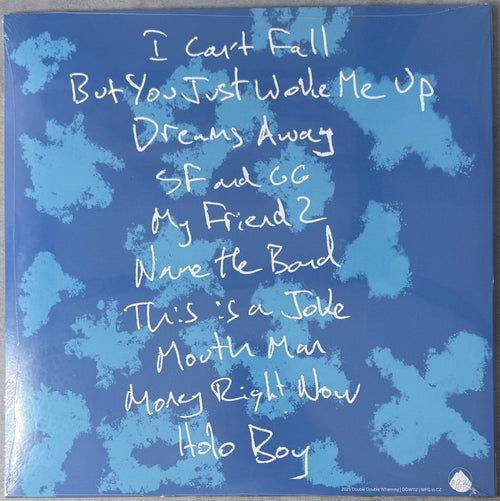 I Can't Fall
But You Just Woke Me Up
Dreams Away
SF and GG
My Friend 2
Name the Band
This is a Joke
Mouth Man
Money Right Now
Holo Boy
2025 Double Double Whammy | DDW112 | MFG in CZ